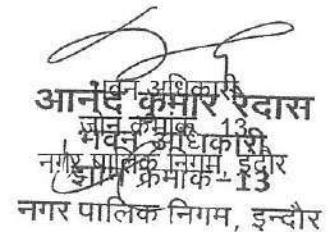 भवन अधिकारी
आनंद कुमार रैदास
जोन क्रमांक - 13
भवन अधिकारी
नगर पालिक निगम, इंदौर
झोन क्रमांक-13
नगर पालिक निगम, इन्दौर